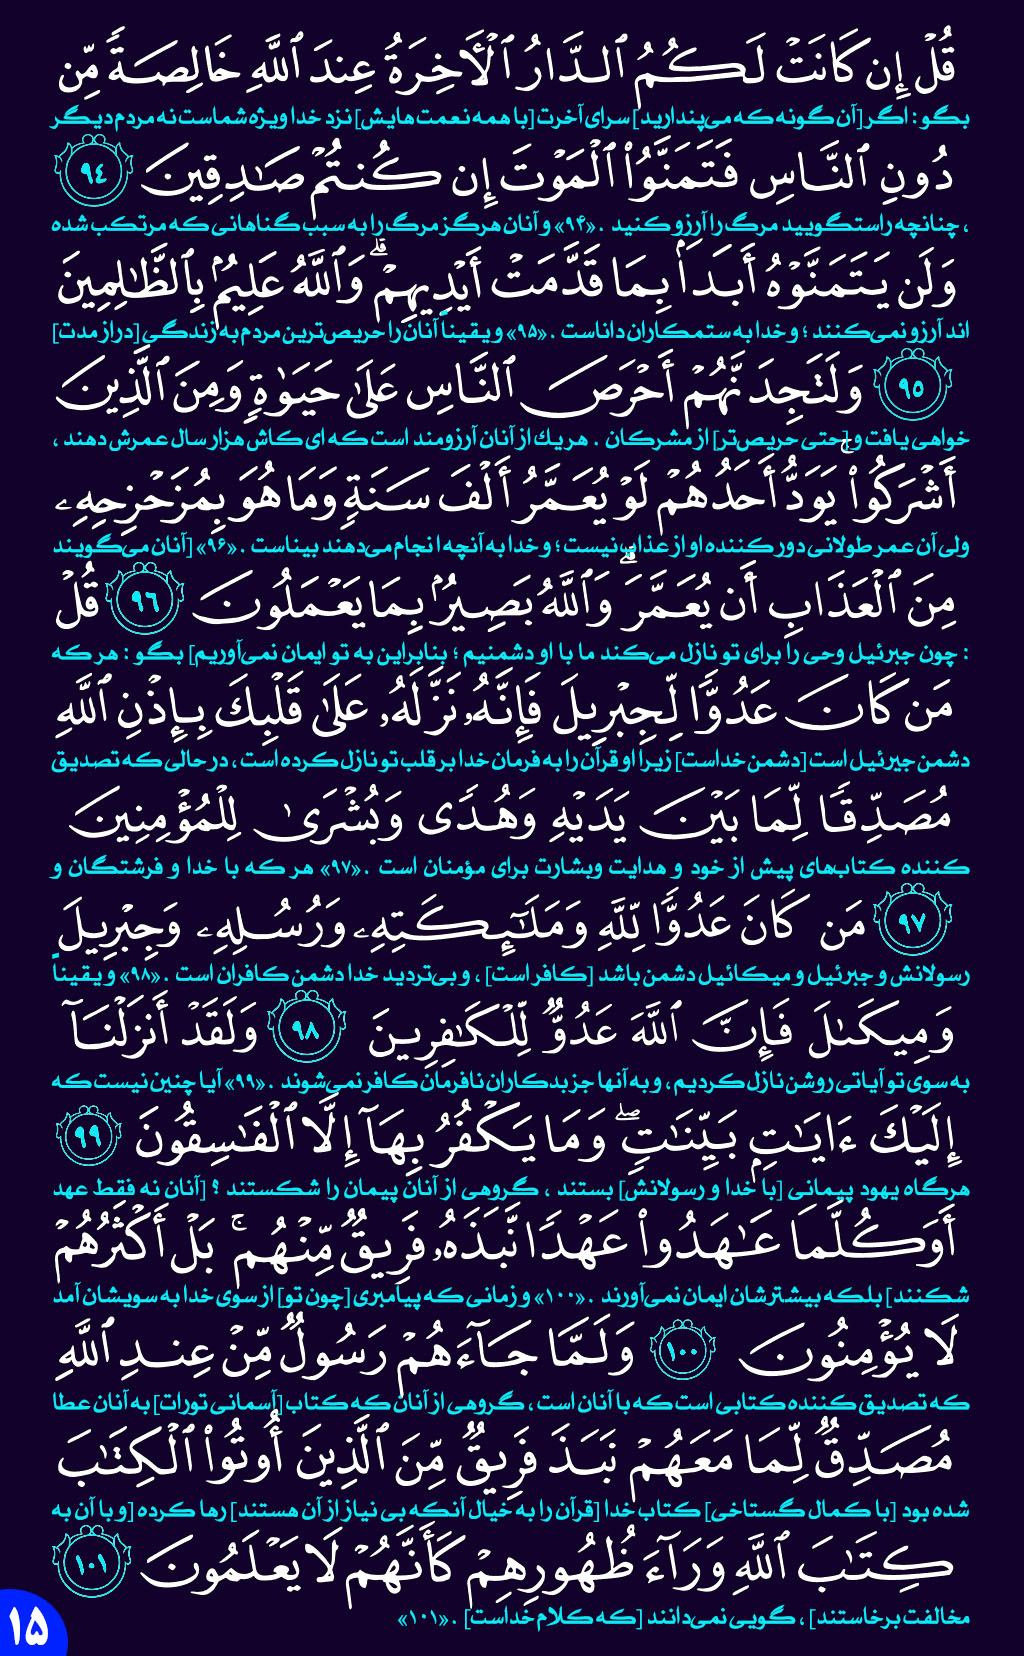 قُلْ إِن كَانَتْ لَكُمُ ٱلدَّارُ ٱلْأَخِرَةُ عِندَ ٱللَّهِ خَالِصَةً مِّن
بگو : اگر [آن گونه که می‌پندارید] سرای آخرت [با همه نعمت‌هایش] نزد خدا ویژه شماست نه مردم دیگر
دُونِ ٱلنَّاسِ فَتَمَنَّوُا۟ ٱلْمَوْتَ إِن كُنتُمْ صَـٰدِقِينَ ٩٤
، چنانچه راستگویید مرگ را آرزو کنید . «۹۴» و آنان هرگز مرگ را به سبب گناهانی که مرتکب شده
وَلَن يَتَمَنَّوْهُ أَبَدًۢا بِمَا قَدَّمَتْ أَيْدِيهِمْ ۗ وَٱللَّهُ عَلِيمٌۢ بِٱلظَّـٰلِمِينَ
اند آرزو نمی‌کنند ؛ و خدا به ستمکاران داناست . «۹۵» و یقیناً آنان را حریص‌ترین مردم به زندگی [دراز مدت]
٩٥ وَلَتَجِدَنَّهُمْ أَحْرَصَ ٱلنَّاسِ عَلَىٰ حَيَوٰةٍ وَمِنَ ٱلَّذِينَ
خواهی یافت و [حتی حریص‌تر] از مشرکان . هر یک از آنان آرزومند است که ای کاش هزار سال عمرش دهند ،
أَشْرَكُوا۟ ۚ يَوَدُّ أَحَدُهُمْ لَوْ يُعَمَّرُ أَلْفَ سَنَةٍ وَمَا هُوَ بِمُزَحْزِحِهِۦ
ولی آن عمر طولانی دور کننده او از عذاب نیست ؛ و خدا به آنچه انجام می‌دهند بیناست . «۹۶» [آنان می‌گویند
مِنَ ٱلْعَذَابِ أَن يُعَمَّرَ ۗ وَٱللَّهُ بَصِيرٌۢ بِمَا يَعْمَلُونَ ٩٦ قُلْ
: چون جبرئیل وحی را برای تو نازل می‌کند ما با او دشمنیم ؛ بنابراین به تو ایمان نمی‌آوریم] بگو : هر که
مَن كَانَ عَدُوًّا لِّجِبْرِيلَ فَإِنَّهُۥ نَزَّلَهُۥ عَلَىٰ قَلْبِكَ بِإِذْنِ ٱللَّهِ
دشمن جبرئیل است [دشمن خداست] زیرا او قرآن را به فرمان خدا بر قلب تو نازل کرده است ، در حالی که تصدیق
مُصَدِّقًا لِّمَا بَيْنَ يَدَيْهِ وَهُدًى وَبُشْرَىٰ لِلْمُؤْمِنِينَ
کننده کتاب‌های پیش از خود و هدایت وبشارت برای مؤمنان است . «۹۷» هر که با خدا و فرشتگان و
٩٧ مَن كَانَ عَدُوًّا لِّلَّهِ وَمَلَـٰٓئِكَتِهِۦ وَرُسُلِهِۦ وَجِبْرِيلَ
رسولانش و جبرئیل و میکائیل دشمن باشد [کافر است] ، و بی‌تردید خدا دشمن کافران است . «۹۸» و یقیناً
وَمِيكَىٰلَ فَإِنَّ ٱللَّهَ عَدُوٌّ لِّلْكَـٰفِرِينَ ٩٨ وَلَقَدْ أَنزَلْنَآ
به سوی تو آیاتی روشن نازل کردیم ، و به آنها جز بدکاران نافرمان کافر نمی‌شوند . «۹۹» آیا چنین نیست که
إِلَيْكَ ءَايَـٰتٍۭ بَيِّنَـٰتٍ ۖ وَمَا يَكْفُرُ بِهَآ إِلَّا ٱلْفَـٰسِقُونَ ٩٩
هرگاه یهود پیمانی [با خدا و رسولانش] بستند ، گروهی از آنان پیمان را شکستند ؟ [آنان نه فقط عهد
أَوَكُلَّمَا عَـٰهَدُوا۟ عَهْدًا نَّبَذَهُۥ فَرِيقٌ مِّنْهُم ۚ بَلْ أَكْثَرُهُمْ
شکنند] بلکه بیشترشان ایمان نمی‌آورند . «۱۰۰» و زمانی که پیامبری [چون تو] از سوی خدا به سویشان آمد
لَا يُؤْمِنُونَ ١٠٠ وَلَمَّا جَآءَهُمْ رَسُولٌ مِّنْ عِندِ ٱللَّهِ
که تصدیق کننده کتابی است که با آنان است ، گروهی از آنان که کتاب [آسمانی تورات] به آنان عطا
مُصَدِّقٌ لِّمَا مَعَهُمْ نَبَذَ فَرِيقٌ مِّنَ ٱلَّذِينَ أُوتُوا۟ ٱلْكِتَـٰبَ
شده بود [با کمال گستاخی] کتاب خدا [قرآن را به خیال آنکه بی نیاز از آن هستند] رها کرده [و با آن به
كِتَـٰبَ ٱللَّهِ وَرَآءَ ظُهُورِهِمْ كَأَنَّهُمْ لَا يَعْلَمُونَ ١٠١
مخالفت برخاستند] ، گویی نمی‌دانند [که کلام خداست] . «۱۰۱»
۱۵